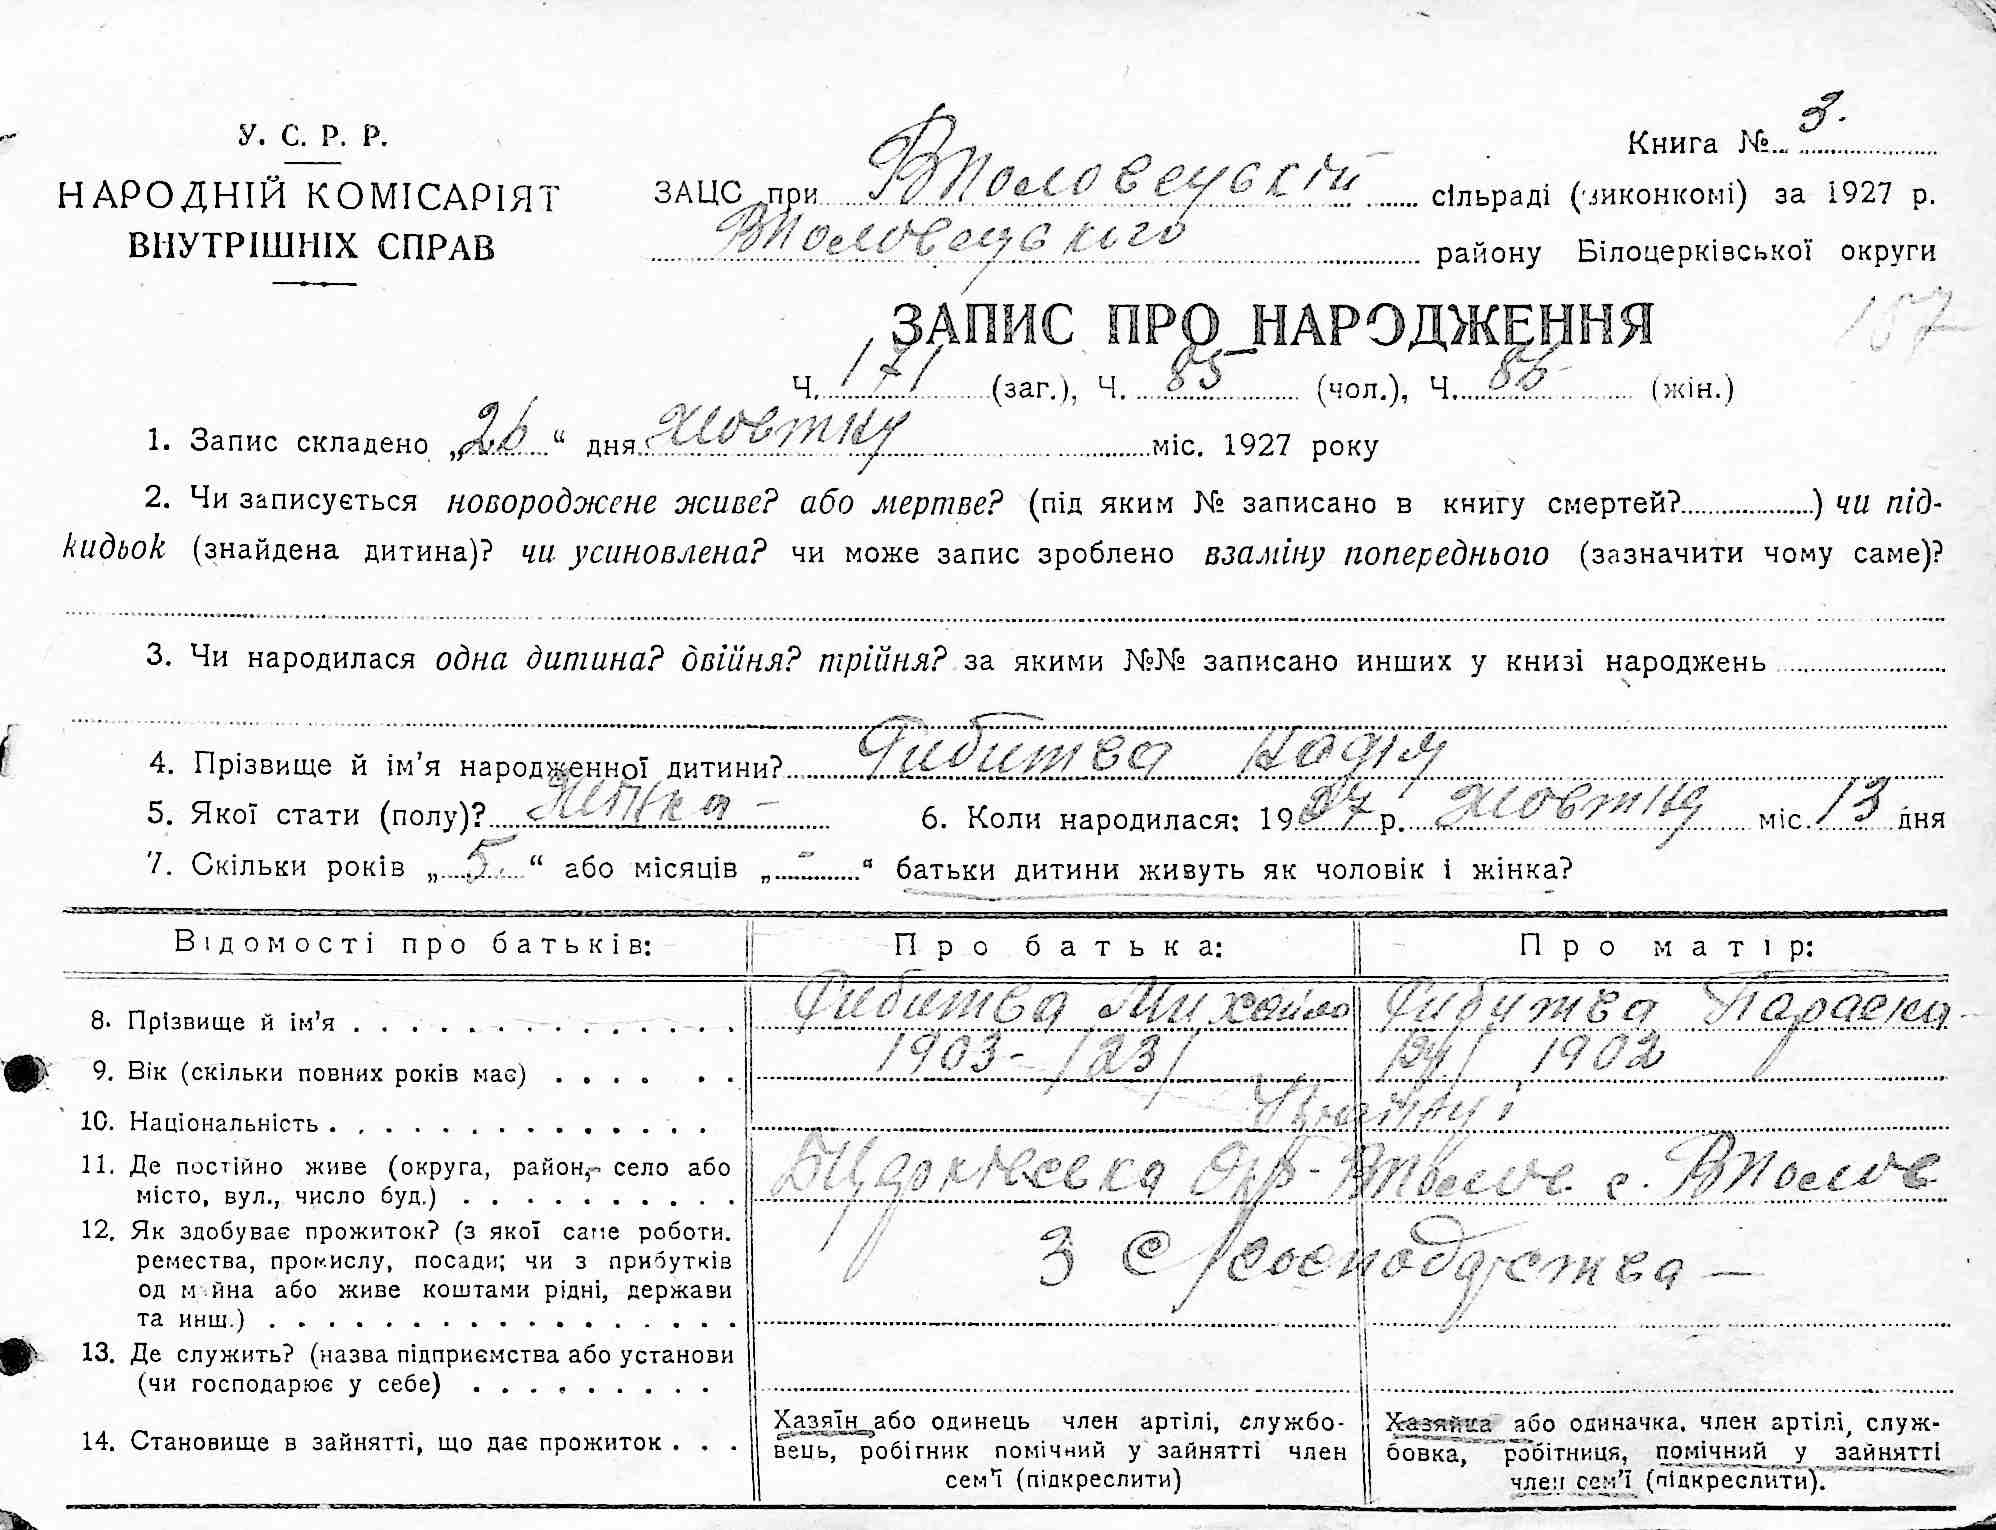 Книга № 3.
У. С. Р. Р.
НАРОДНІЙ КОМІСАРІЯТ
ВНУТРІШНІХ СПРАВ
ЗАЦС при ВПоловецькій сільраді (виконкомі) за 1927 р.
ВПоловецького району Білоцерківської округи
157
ЗАПИС ПРО НАРОДЖЕННЯ
Ч. 171 (заг.), Ч. 85 (чол.), Ч. 86 (жін.)
1. Запис складено „26“ дня Жовтня міс. 1927 року
2. Чи записується новороджене живе? або мертве? (під яким № записано в книгу смертей?) чи під-
кидьок (знайдена дитина)? чи усиновлена? чи може запис зроблено взаміну попереднього (зазначити чому саме)?
3. Чи народилася одна дитина? двійня? трійня? за якими №№ записано инших у книзі народжень
4. Прізвище й ім’я народженної дитини? Рибитва Надія
5. Якої стати (полу)? Жінка – 6. Коли народилася: 1927 р. Жовтня міс. 13 дня
7. Скільки років „5“ або місяців „-“ батьки дитини живуть як чоловік і жінка?
Відомості про батьків: Про батька: Про матір:
8. Прізвище й ім’я Рибитва Михайло Рибитва Параска
9. Вік (скільки повних років має) 1903 - /23/ /24/ 1902
10. Національність Українці
11. Де постійно живе (округа, район, село або
місто, вул., число буд.) Б Церківська Окр. ВПолов. с. ВПолов
12. Як здобуває прожиток? (з якої саме роботи.
ремества, промислу, посади; чи з прибутків
од майна або живе коштами рідні, держави
та инш.) З с/господарства –
13. Де служить? (назва підприємства або установи
(чи господарює у себе)
14. Становище в зайнятті, що дає прожиток
Хазяїн або одинець член артілі, службо-
вець, робітник помічний у зайнятті член
сем’ї (підкреслити)
Хазяйка або одиначка, член артілі, служ-
бовка, робітниця, помічний у зайнятті
член сем’ї (підкреслити).